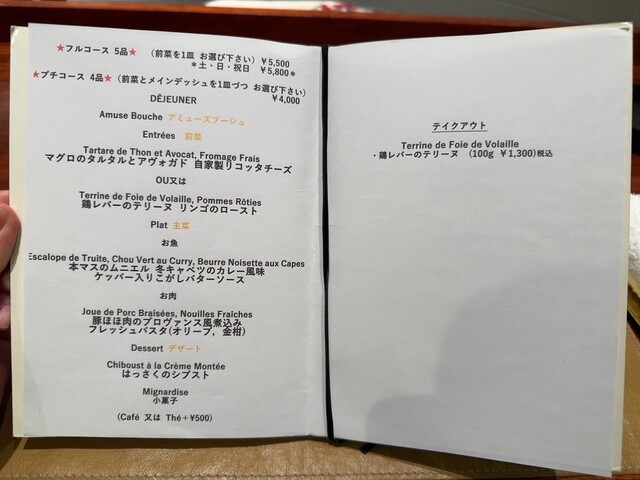 ★フルコース 5品★ （前菜を1皿 お選び下さい）￥5,500
＊土・日・祝日 ￥5,800＊
★プチコース 4品★（前菜とメインデッシュを1皿づつ お選び下さい）
￥4,000
DÊJEUNER
Amuse Bouche アミューズブーシュ
Entrées 前菜
Tartare de Thon et Avocat, Fromage Frais
マグロのタルタルとアヴォガド 自家製リコッタチーズ
OU又は
Terrine de Foie de Volaille, Pommes Rôties
鶏レバーのテリーヌ リンゴのロースト
Plat 主菜
お魚
Escalope de Truite, Chou Vert au Curry, Beurre Noisette aux Capes
本マスのムニエル 冬キャベツのカレー風味
ケッパー入りこがしバターソース
お肉
Joue de Porc Braisées, Nouilles Fraîches
豚ほほ肉のプロヴァンス風煮込み
フレッシュパスタ(オリーブ，金柑)
Dessert デザート
Chiboust à la Crème Montée
はっさくのシブスト
Mignardise
小菓子
(Café 又は Thé＋¥500)
テイクアウト
Terrine de Foie de Volaille
・鶏レバーのテリーヌ （100g ￥1,300)税込